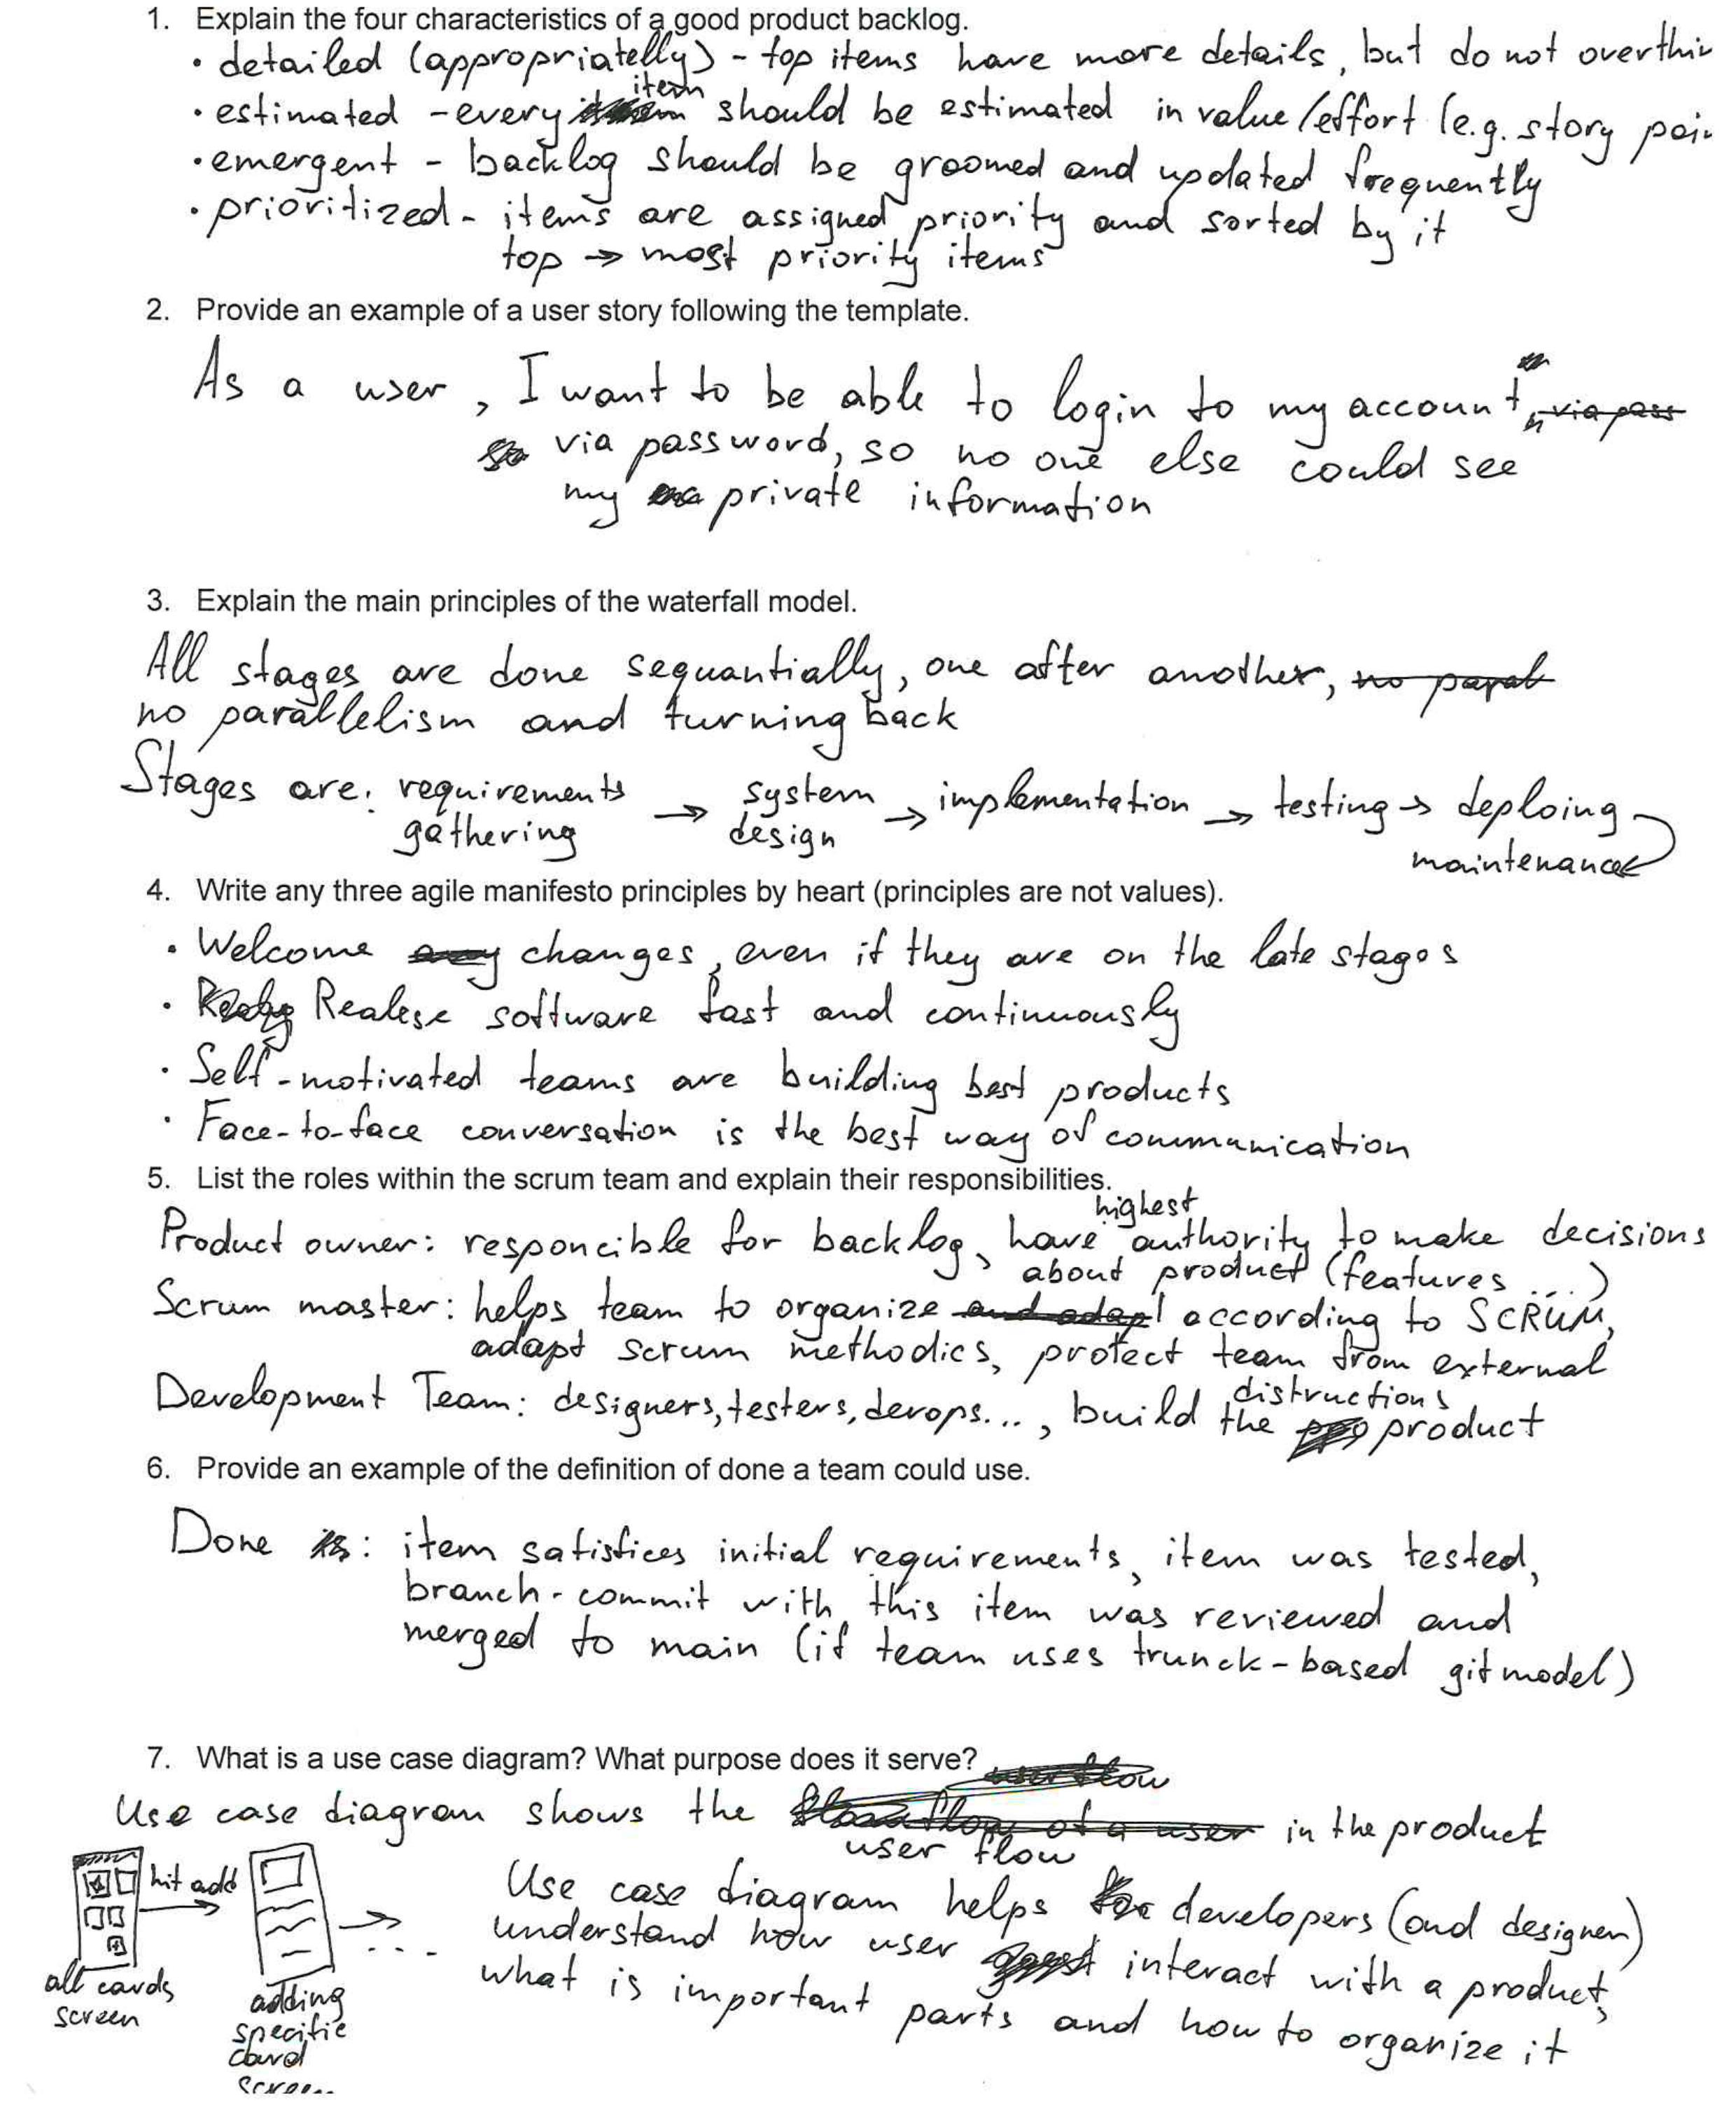 1. Explain the four characteristics of a good product backlog.
• detailed (appropriatelly) - top items have more details, but do not overthin
• estimated - every item should be estimated in value/effort (e.g. story poi
• emergent - backlog should be groomed and updated frequently
• prioritized - items are assigned priority and sorted by it
top → most priority items
2. Provide an example of a user story following the template.
As a user, I want to be able to login to my account, via pass
via password, so no one else could see
my private information
3. Explain the main principles of the waterfall model.
All stages are done sequantially, one after another, no paral
no parallelism and turning back
Stages are: requirements gathering → system design → implementation → testing → deploing
maintenance
4. Write any three agile manifesto principles by heart (principles are not values).
• Welcome any changes, even if they are on the late stages
• Realese software fast and continuously
• Self-motivated teams are building best products
• Face-to-face conversation is the best way of communication
5. List the roles within the scrum team and explain their responsibilities.
Product owner: responcible for backlog, have highest authority to make decisions
about product (features ...)
Scrum master: helps team to organize and adapt according to SCRUM,
adapt scrum methodics, protect team from external
distructions
Development Team: designers, testers, devops..., build the product
6. Provide an example of the definition of done a team could use.
Done is: item satisfices initial requirements, item was tested,
branch-commit with this item was reviewed and
merged to main (if team uses trunck-based git model)
7. What is a use case diagram? What purpose does it serve?
user flow
Use case diagram shows the flow of a user in the product
user flow
Use case diagram helps developers (and designer)
understand how user interact with a product,
what is important parts and how to organize it
hit add
...
all cards
screen
adding
specific
card
screen